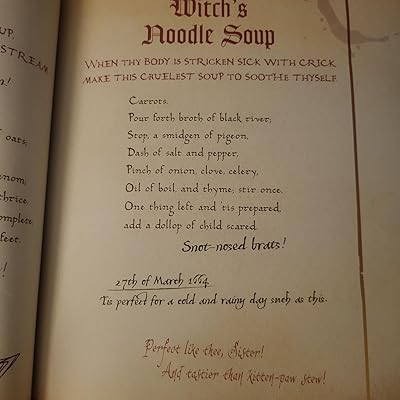 Witch's
Noodle Soup
When thy body is stricken sick with crick
make this cruelest soup to soothe thyself.
Carrots.
Pour forth broth of black river;
Stop, a smidgen of pigeon,
Dash of salt and pepper,
Pinch of onion, clove, celery,
Oil of boil, and thyme; stir once,
One thing left and 'tis prepared,
add a dollop of child scared.
Snot-nosed brats!
27th of March 1664
'Tis perfect for a cold and rainy day such as this.
Perfect like thee, Sister!
And tastier than kitten-paw stew!
up,
stream
oats;
thrice.
complete
feet.